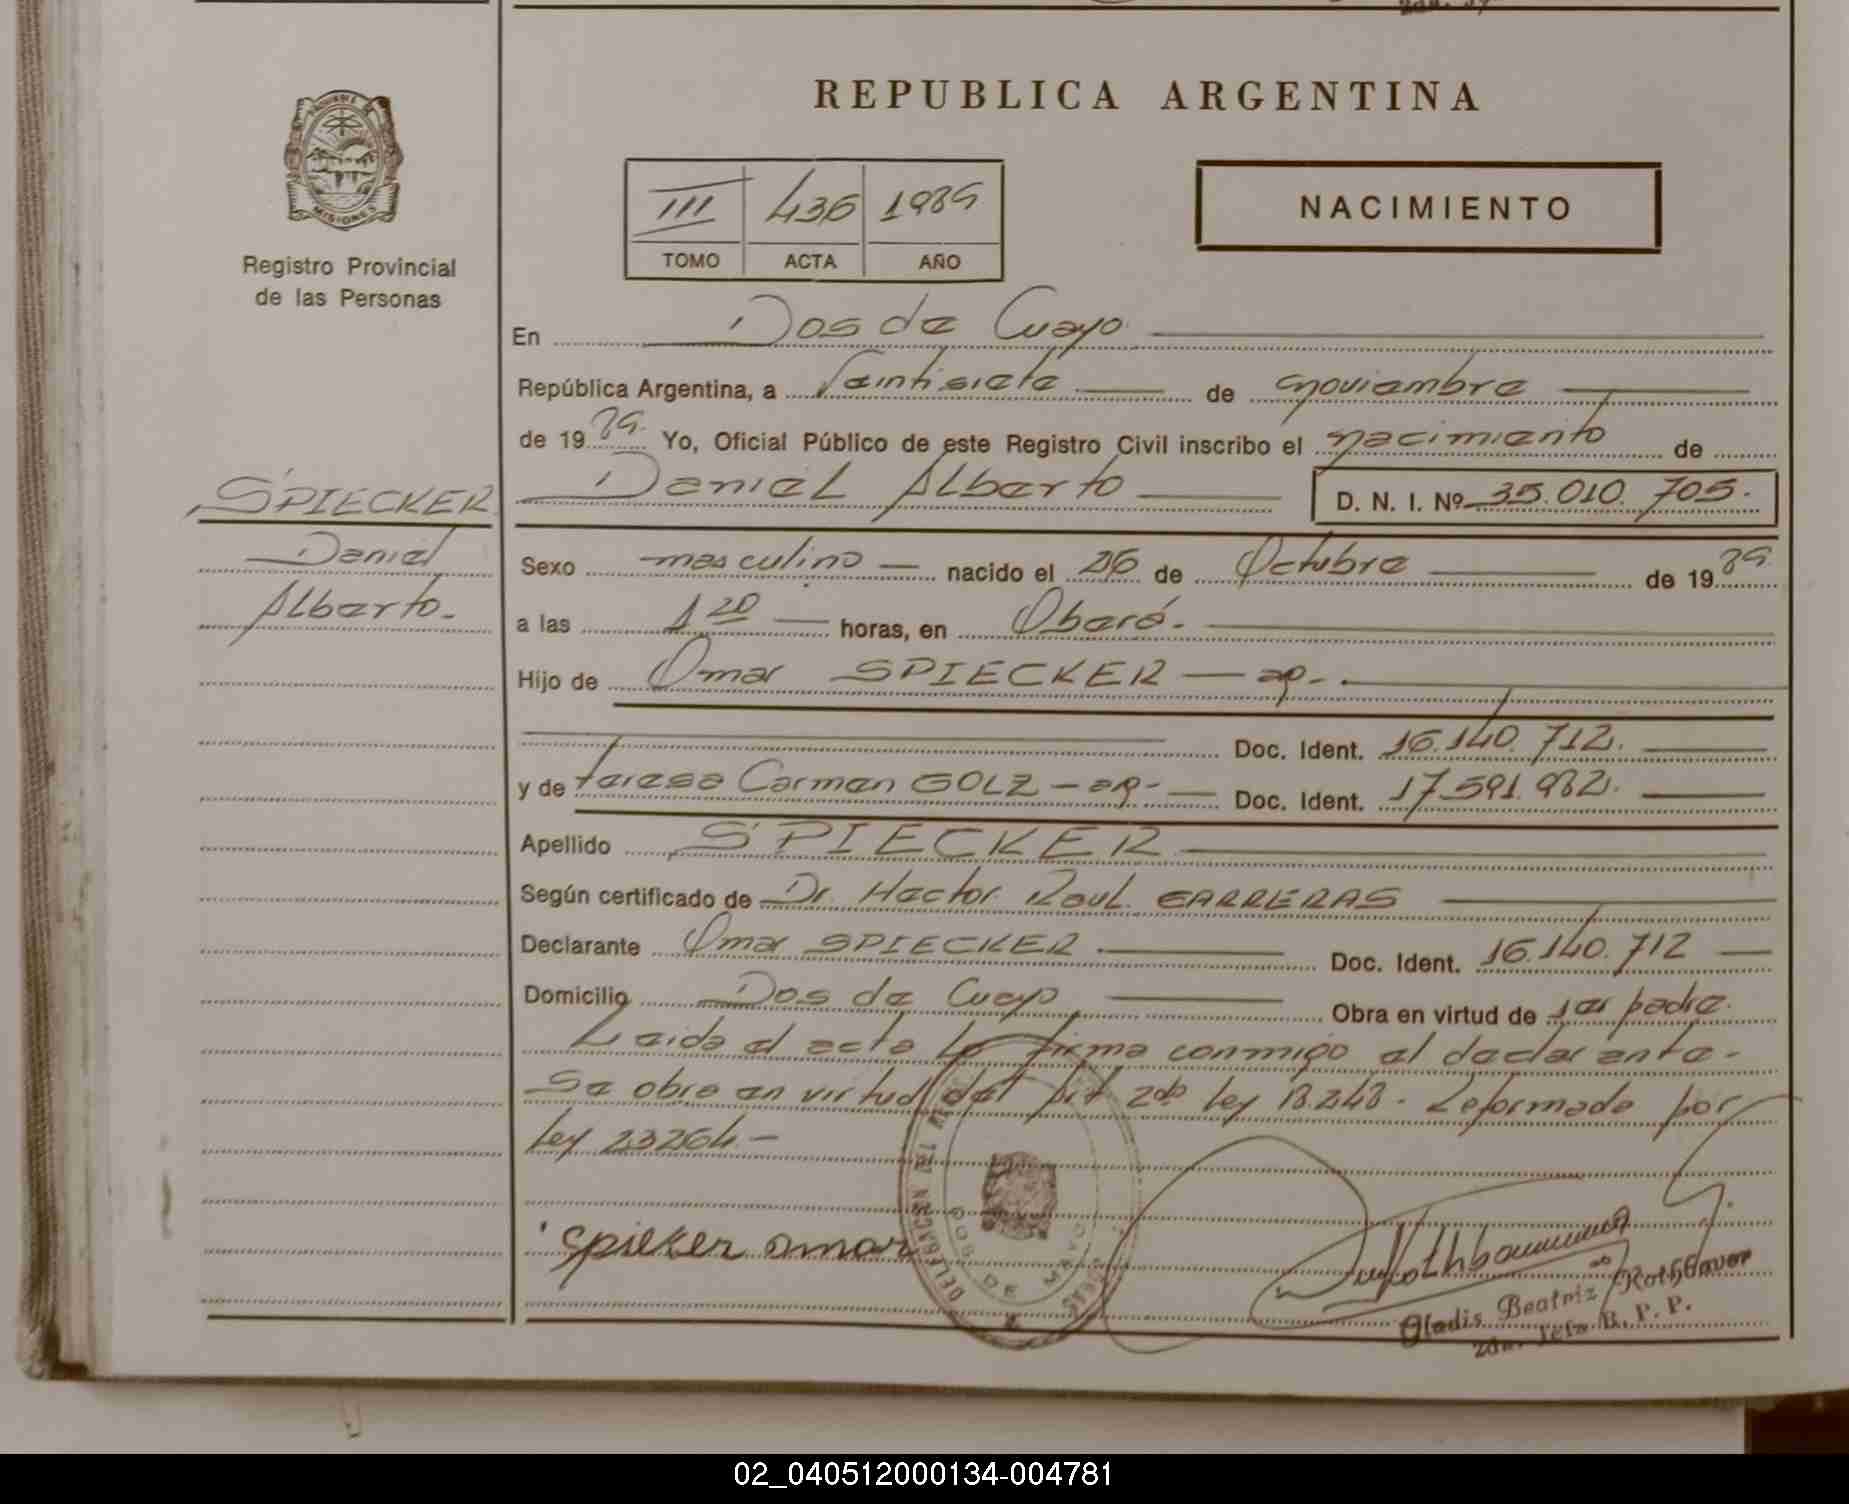 REPUBLICA ARGENTINA
MISIONES
Registro Provincial
de las Personas
III 436 1989
TOMO ACTA AÑO
NACIMIENTO
En Dos de Mayo
República Argentina, a Veintisiete de noviembre
de 19 89. Yo, Oficial Público de este Registro Civil inscribo el nacimiento de
SPIECKER
Daniel
Alberto.-
Daniel Alberto D. N. I. Nº 35.010.705.
Sexo masculino nacido el 26 de Octubre de 19 89.
a las 1 20 horas, en Oberá.-
Hijo de Omar SPIECKER
Doc. Ident. 16.140.712.
y de Teresa Carmen GOLZ Doc. Ident. 17.591.982.
Apellido SPIECKER
Según certificado de Dr. Hector Raul CARRERAS
Declarante Omar SPIECKER Doc. Ident. 16.140.712
Domicilio Dos de Mayo Obra en virtud de ser padre.
Leida el acta la firma conmigo el declarante.-
Se obra en virtud del Art 2do ley 18.248. Reformado por
ley 23264.-
Spieker omar
DELEGACION
DOS DE MAYO
Gladis Beatriz Rothbauer
2da. Jefa R. P. P.
02_040512000134-004781